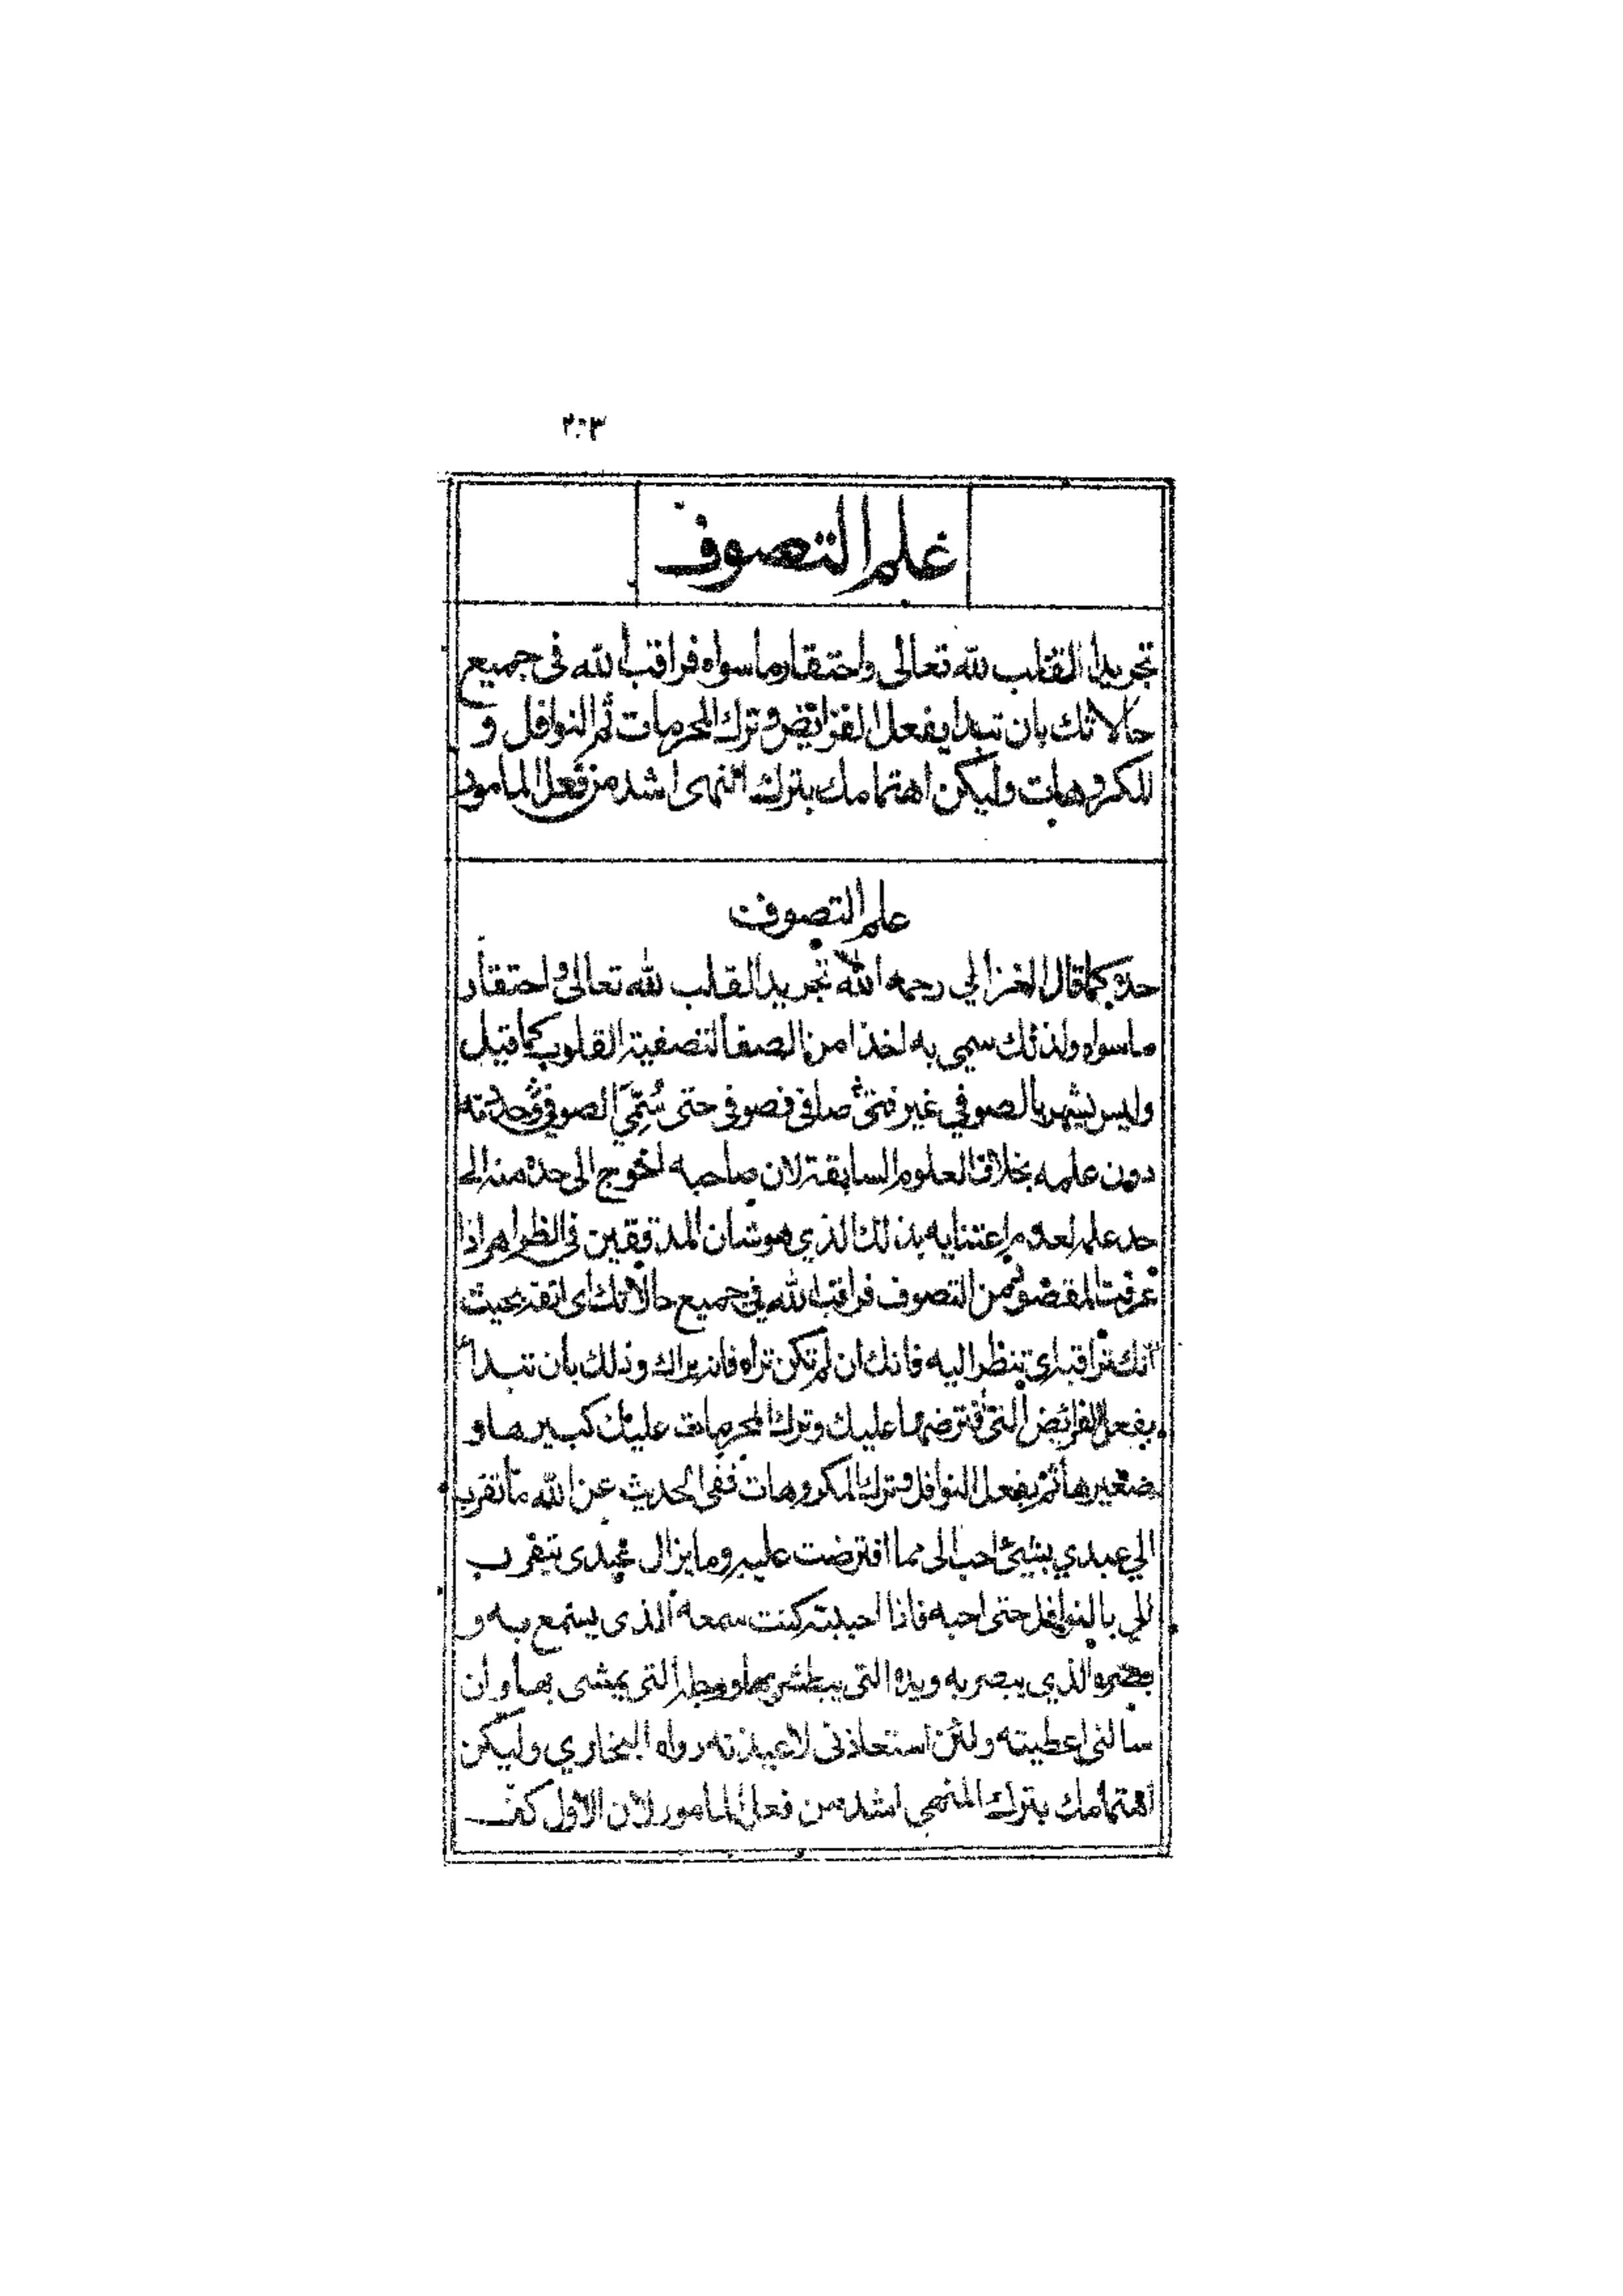 ٢٠٣
علم التصوف
تجريد القلب لله تعالى واحتقار ما سواه فراقب الله في جميع
حالاتك بان تبدا بفعل الفرائض وترك المحرمات ثم النوافل و
المكروهات وليكن اهتمامك بترك المنهى اشد من فعل المامور
علم التصوف
حده كما قال الغزالي رحمه الله تجريد القلب لله تعالى واحتقار
ما سواه ولذلك سمي به اخذا من الصفا لتصفية القلوب كما قيل
وليس يشهر بالصوفي غير فتى صافى فصوفى حتى سُمِّيَ الصوفي وحددته
دون علمه بخلاف العلوم السابقة لان صاحبه احوج الى حده منه الى
حد علمه لعدم اعتنايه بذلك الذي هو شان المدققين في الظواهر اذا
عرفت المقصود من التصوف فراقب الله في جميع حالاتك اى اتقه بحيث
انك تراقبه اي تنظر اليه فانك ان لم تكن تراه فانه يراك وذلك بان تبدأ
بفعل الفرائض التى افترضها عليك وترك المحرمات عليك كبيرها و
صغيرها ثم بفعل النوافل وترك المكروهات ففى الحديث عن الله ما تقرب
الي عبدي بشيئ احب الى مما افترضت عليه وما يزال عبدى يتقرب
الي بالنوافل حتى احبه فاذا احببته كنت سمعه الذى يسمع به و
بصره الذي يبصر به ويده التى يبطش بها ورجله التى يمشى بها وان
سالنى اعطيته ولئن استعاذنى لاعيذنه رواه البخاري وليكن
اهتمامك بترك المنهي اشد من فعل المامور لان الاول كف